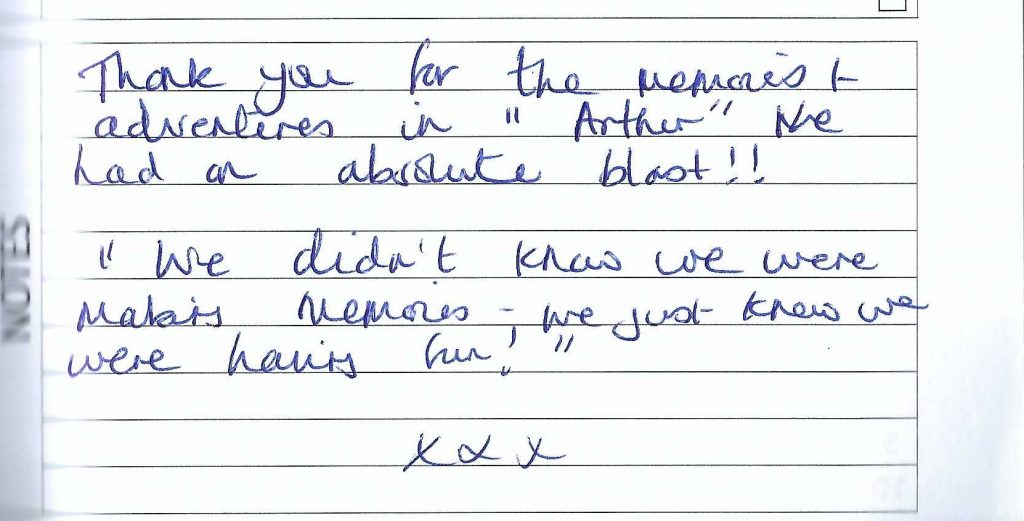 Thank you for the memories +
adventures in "Arthur" We
had an absolute blast!!
"We didn't know we were
Making Memories - we just knew we
were having fun!"
x x x
NOTES